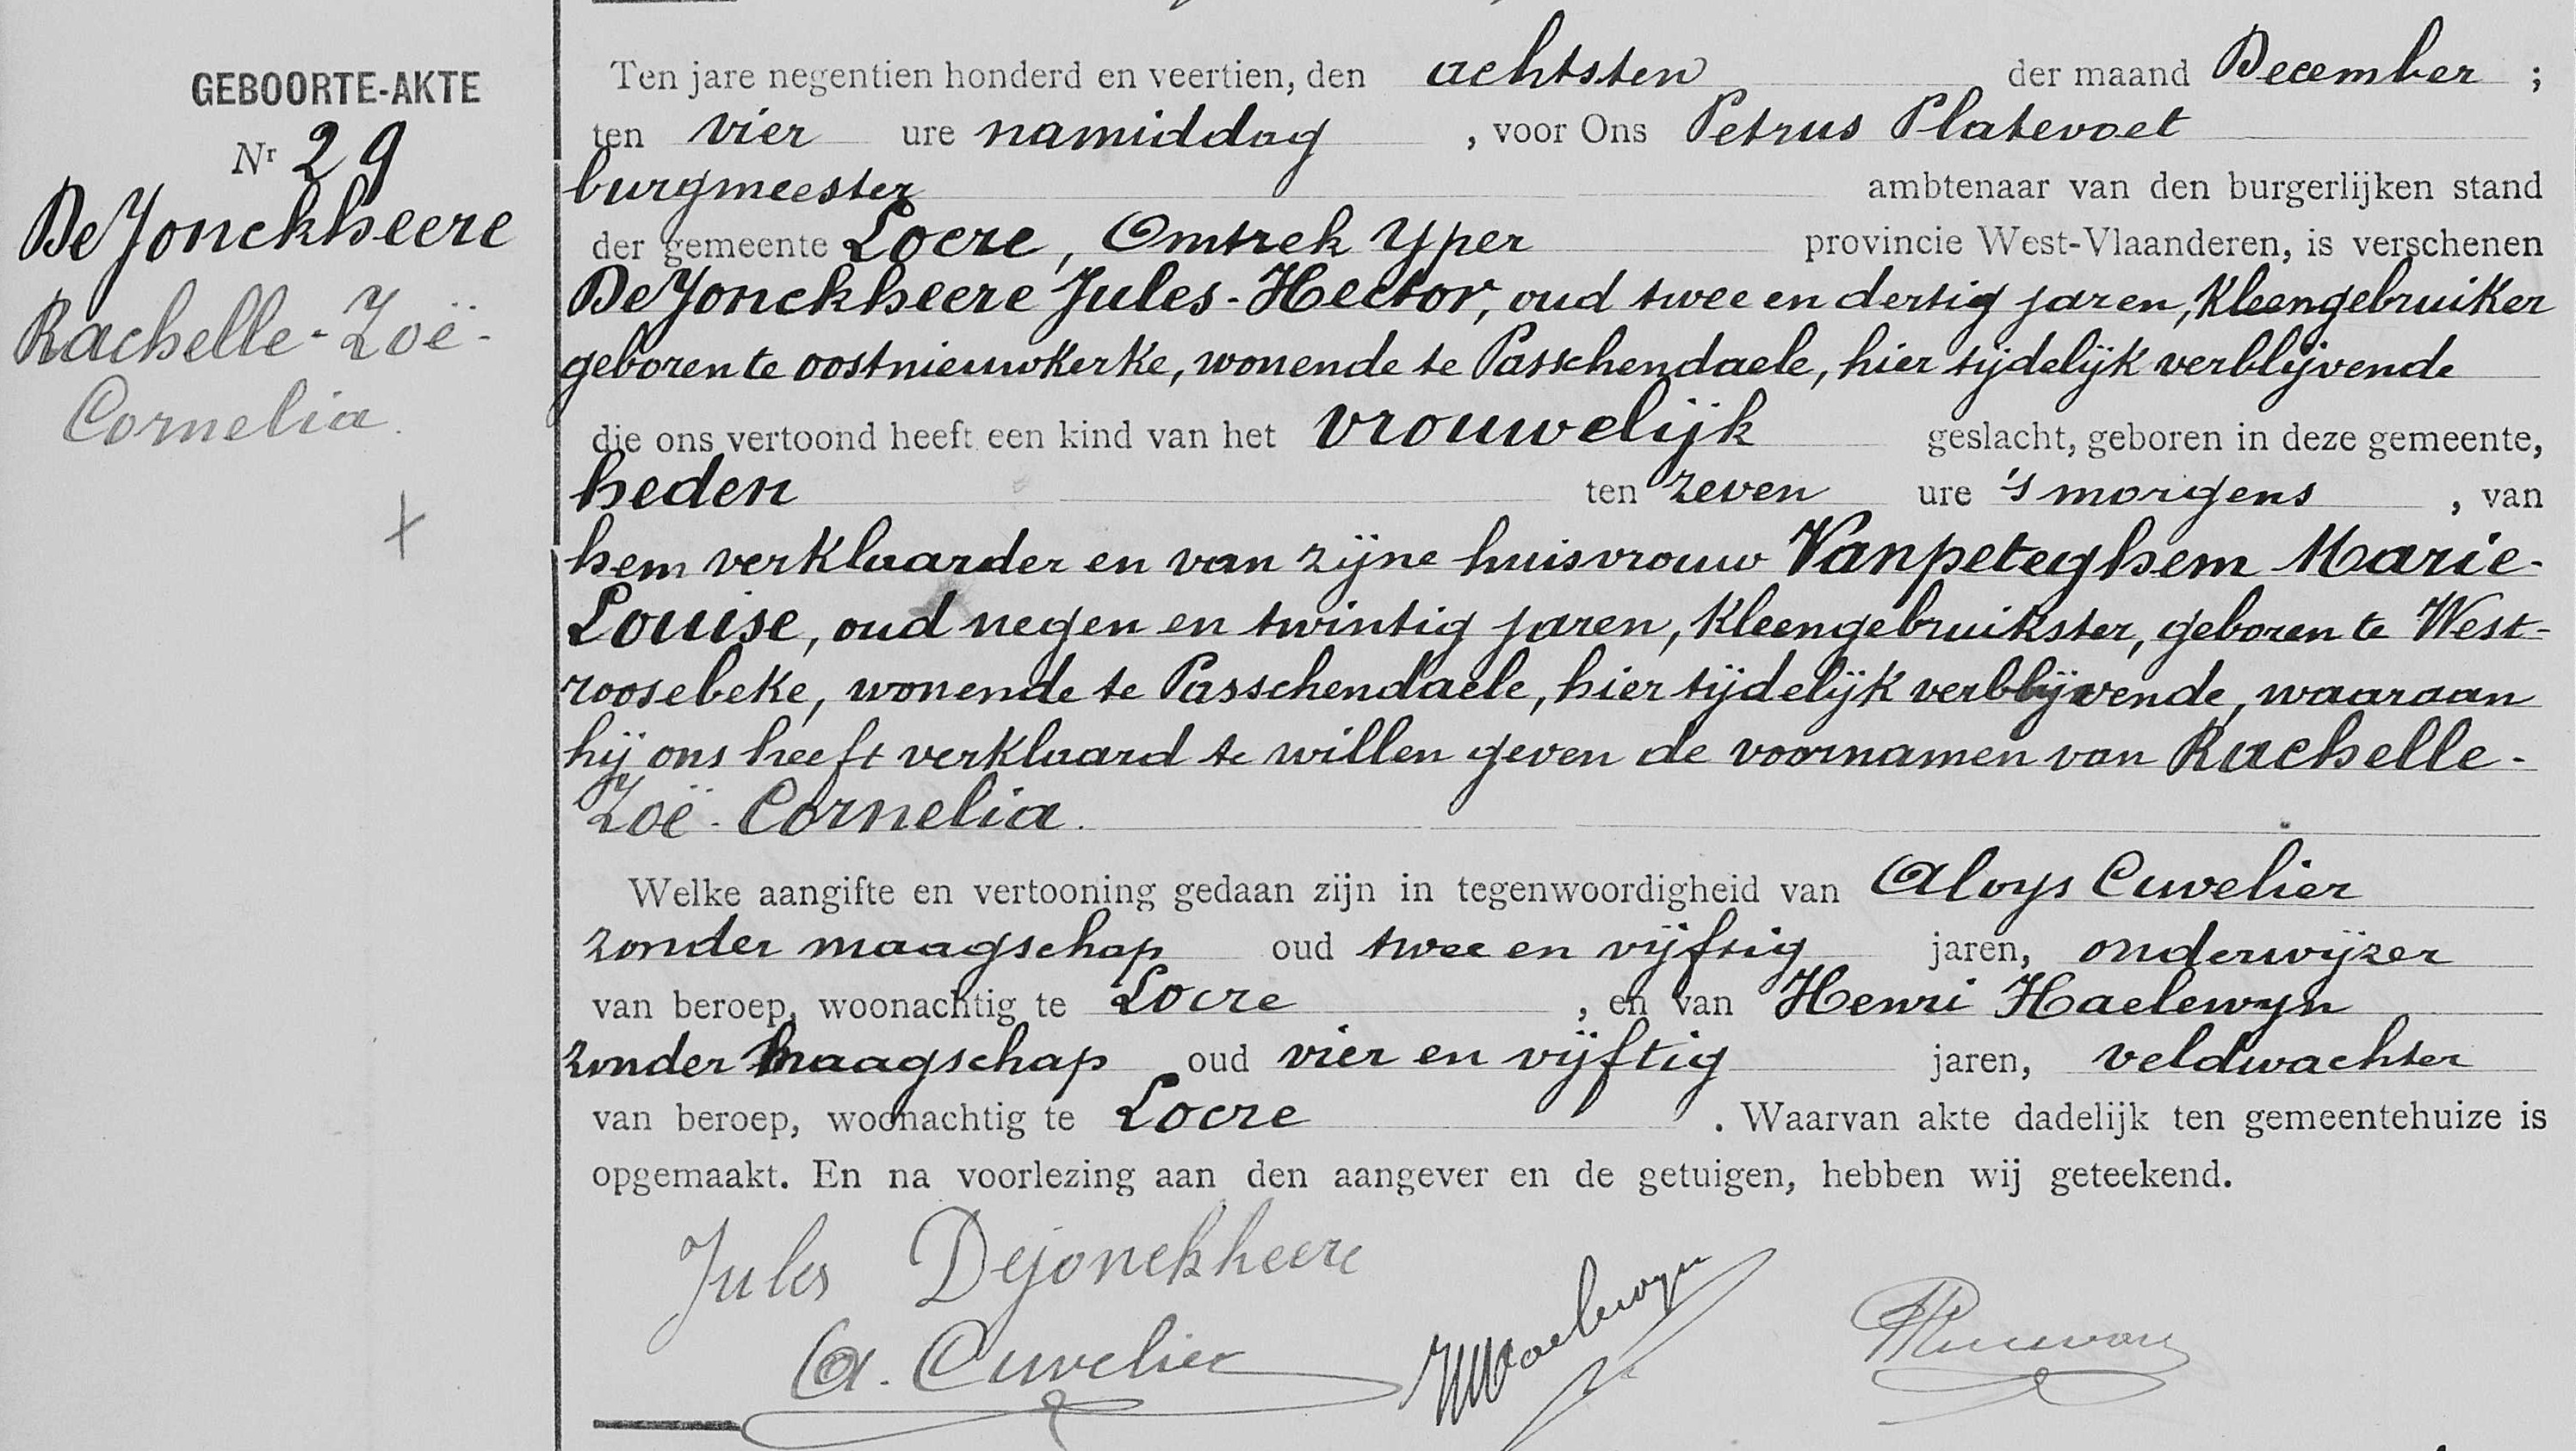 GEBOORTE-AKTE
Nr 29
DeJonckheere
Rachelle-Zoë-
Cornelia.
Ten jare negentien honderd en veertien, den achtsten der maand December ;
ten vier ure namiddag , voor Ons Petrus Platevoet
burgmeester ambtenaar van den burgerlijken stand
der gemeente Locre, Omtrek Yper provincie West-Vlaanderen, is verschenen
DeJonckheere Jules-Hector, oud twee en dertig jaren, Kleengebruiker
geboren te oostnieuwkerke, wonende te Passchendaele, hier tijdelijk verblijvende
die ons vertoond heeft een kind van het vrouwelijk geslacht, geboren in deze gemeente,
heden ten zeven ure 's morgens , van
hem verklaarder en van zijne huisvrouw Vanpeteghem Marie-
Louise, oud negen en twintig jaren, Kleengebruikster, geboren te West-
roosebeke, wonende te Passchendaele, hier tijdelijk verblijvende, waaraan
hij ons heeft verklaard te willen geven de voornamen van Rachelle-
Zoë-Cornelia.
Welke aangifte en vertooning gedaan zijn in tegenwoordigheid van Aloys Cuvelier
zonder maagschap oud twee en vijftig jaren, onderwijzer
van beroep, woonachtig te Locre , en van Henri Haelewyn
zonder maagschap oud vier en vijftig jaren, veldwachter
van beroep, woonachtig te Locre . Waarvan akte dadelijk ten gemeentehuize is
opgemaakt. En na voorlezing aan den aangever en de getuigen, hebben wij geteekend.
Jules Dejonckheere
A. Cuvelier
HHaelewyn